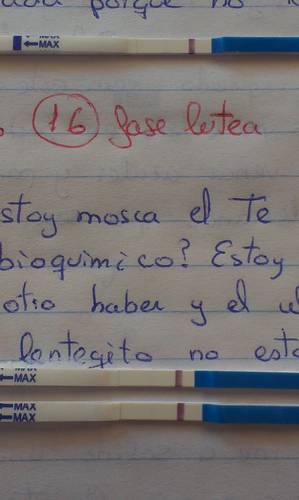 porque no
MAX
16 fase lutea
stoy mosca el Te
bioquimico? Estoy
otro haber y el
lentegito no esta
MAX
MAX
MAX